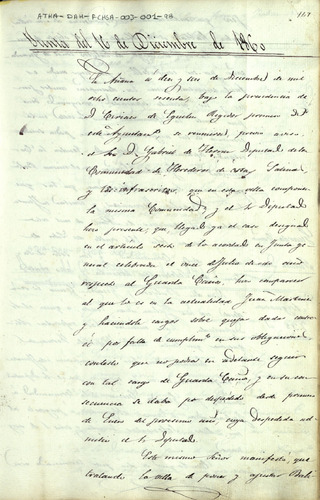 ATHA-DAH-FCHSA-003-001-98
Junta del 16 de Diciembre de 1860
En Añana a diez y seis de Diciembre de mil
ocho cientos sesenta, bajo la presidencia de
D. Ciriaco de Regidor primero de
este Ayuntam.to se reunieron, previo aviso
el Sor. D. Gabriel de Diputado de la
Comunidad de Herederos de estas Salinas
y los infrascritos, que en esta villa componen
la misma Comunidad, y el Sr Diputado
hizo presente, que llegado ya el caso designado
en el articulo sesto de lo acordado en Junta ge-
neral celebrada el once de Julio de este año
respecto al Guarda hizo comparecer
al que lo es en la actualidad Juan Martinez
y haciendole cargos sobre quejas dadas contra
él por falta de cumplim.to en sus obligaciones
contestó que no podia en adelante seguir
con tal cargo de Guarda y en su con-
secuencia se daba por despedido desde primero
de Enero del procsimo año, cuya despedida ad-
mitió el Sr. Diputado.
Este mismo Señor manifestó, que
tratando la villa de poner y ajustar